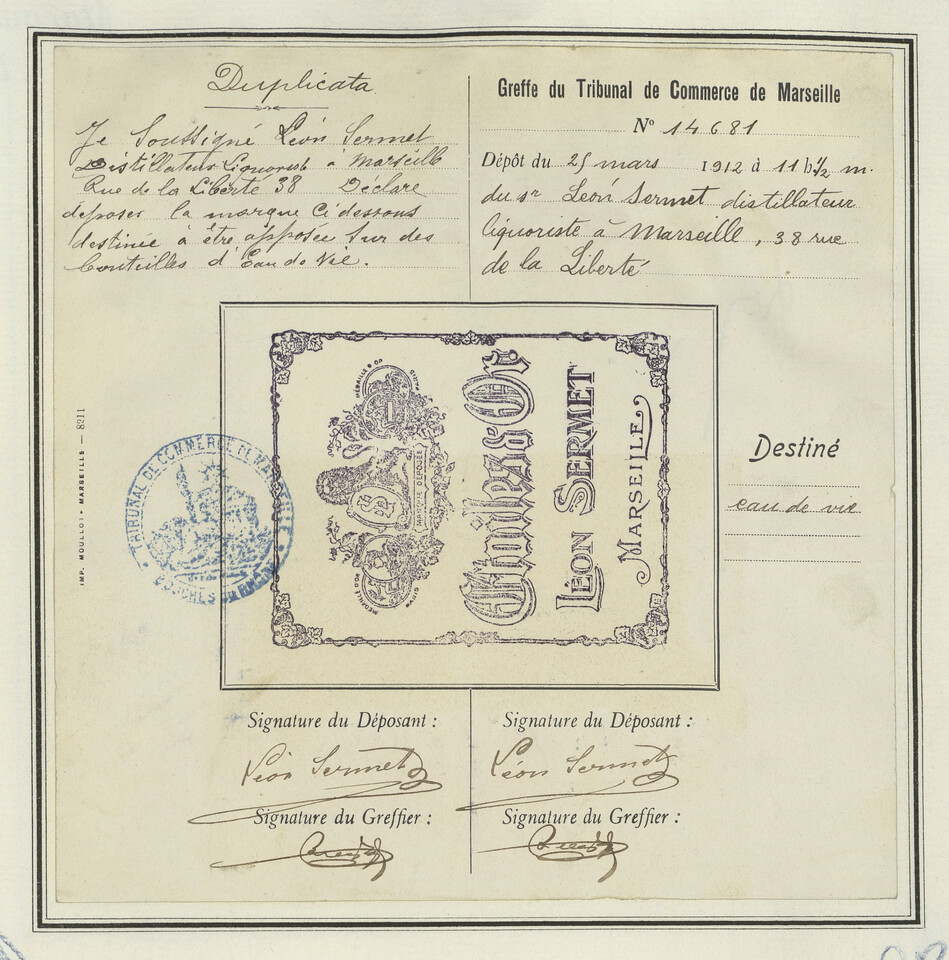 Duplicata
Je Soussigné Léon Sermet
Distillateur Liquoriste à Marseille
Rue de la Liberté 38 Déclare
déposer la marque Ci dessous
destinée à être apposée Sur des
bouteilles d'Eau de Vie.
Greffe du Tribunal de Commerce de Marseille
N° 14681
Dépôt du 25 mars 1912 à 11 h ½ m.
du sr Léon Sermet distillateur
liquoriste à Marseille, 38 rue
de la Liberté
IMP. MOULLOT • MARSEILLE — 8211
TRIBUNAL DE COMMERCE DE MARSEILLE
BOUCHES DU RHÔNE
MÉDAILLE D'OR
PARIS
MARQUE DÉPOSÉE
MÉDAILLE D'OR
Etoiles d'Or
LÉON SERMET
MARSEILLE
Destiné
eau de vie
Signature du Déposant :
Léon Sermet
Signature du Greffier :
Signature du Déposant :
Léon Sermet
Signature du Greffier :